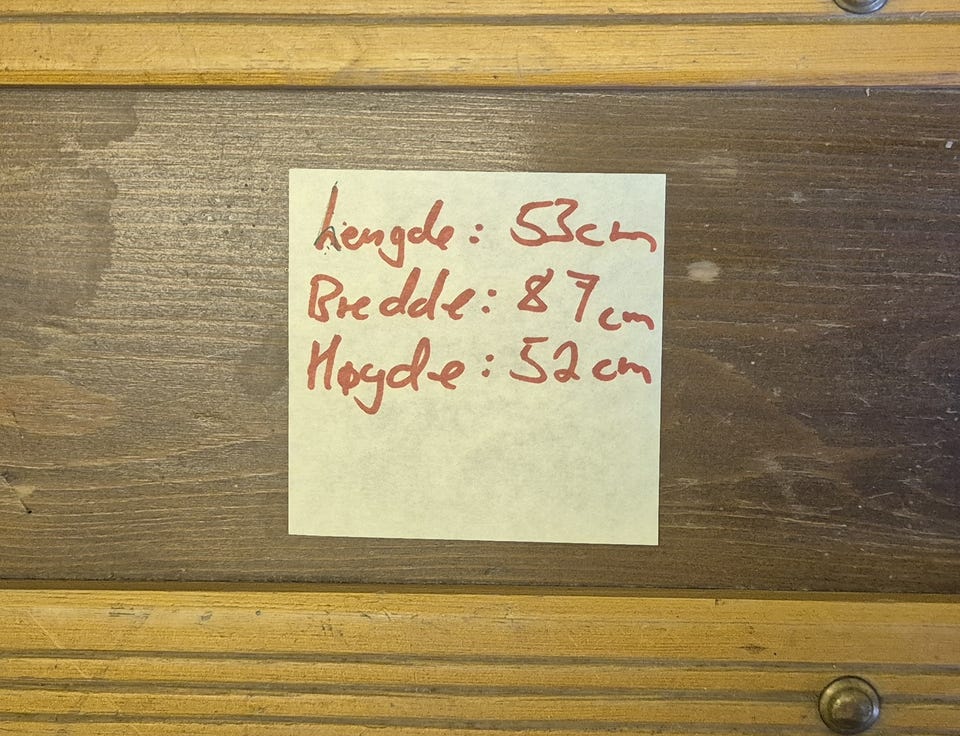 Lengde: 53cm
Bredde: 87cm
Høyde: 52cm